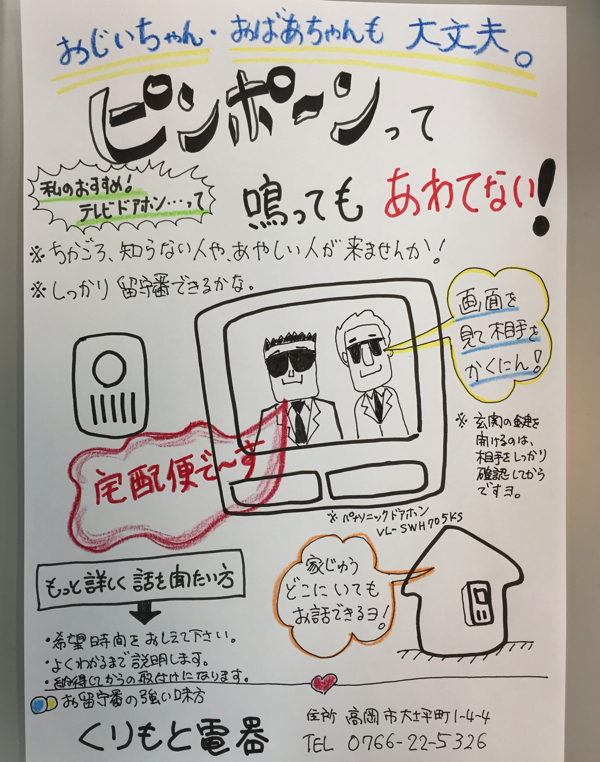 おじいちゃん・おばあちゃんも 大丈夫。
ピンポーンって
私のおすすめ!
テレビドアホン…って
鳴っても あわてない!
※ちかごろ、知らない人や、あやしい人が来ませんか!
※しっかり留守番できるかな。
画面を
見て相手を
かくにん!
宅配便で〜す
※玄関の鍵を
開けるのは、
相手をしっかり
確認してから
ですヨ。
※パナソニックドアホン
VL-SWH705KS
もっと詳しく話を聞たい方
家じゅう
どこにいても
お話できるヨ!
・希望時間をおしえて下さい。
・よくわかるまで説明します。
・納得してからの取付けになります。
お留守番の強い味方
くりもと電器
住所 高岡市大坪町1-4-4
TEL 0766-22-5326